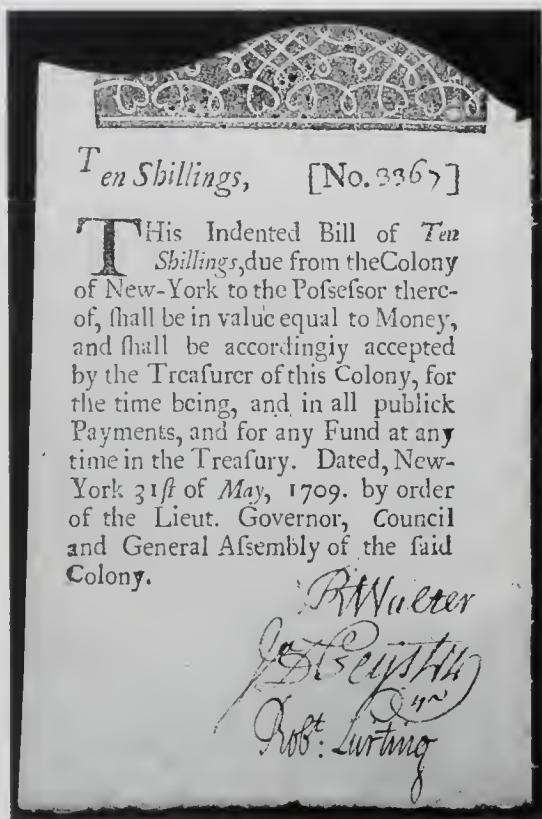 Ten Shillings, [No. 3367]
THis Indented Bill of Ten
Shillings, due from theColony
of New-York to the Poſseſsor there-
of, ſhall be in value equal to Money,
and ſhall be accordingiy accepted
by the Treaſurer of this Colony, for
the time being, and in all publick
Payments, and for any Fund at any
time in the Treaſury. Dated, New-
York 31ſt of May, 1709. by order
of the Lieut. Governor, Council
and General Aſsembly of the ſaid
Colony.
R Walter
Robt: Lurting